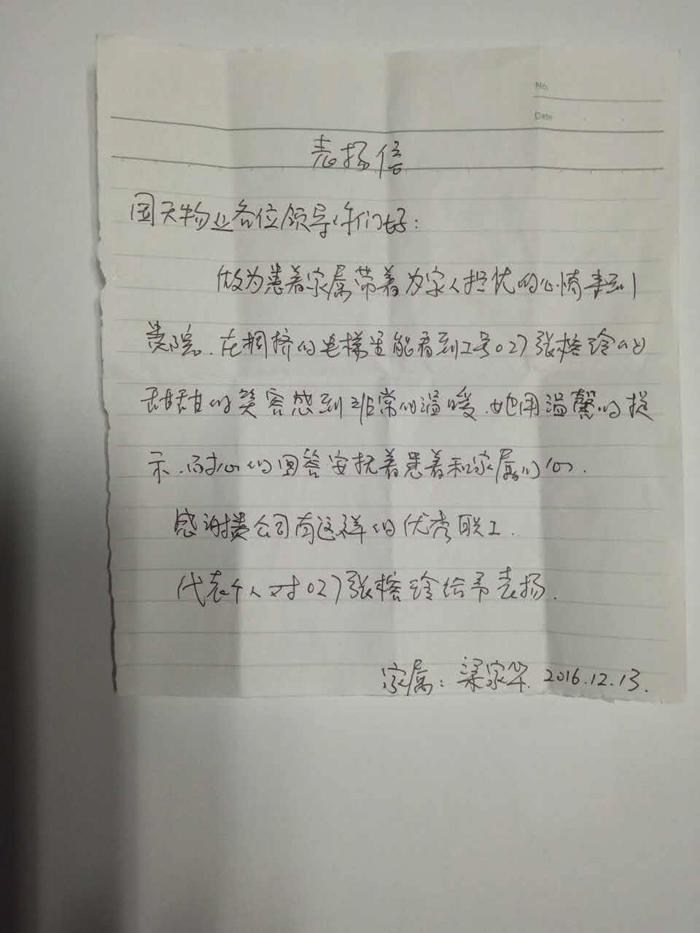 No.
Date
表扬信
国天物业各位领导你们好：
做为患者家属带着为家人担忧的心情来到
贵院.在拥挤的电梯里能看到工号027张榕玲的
甜甜的笑容感到非常的温暖.她用温馨的提
示.耐心的回答安抚着患者和家属们的.
感谢贵公司有这样的优秀职工.
代表个人对027张榕玲给予表扬.
家属：梁家军.2016.12.13.